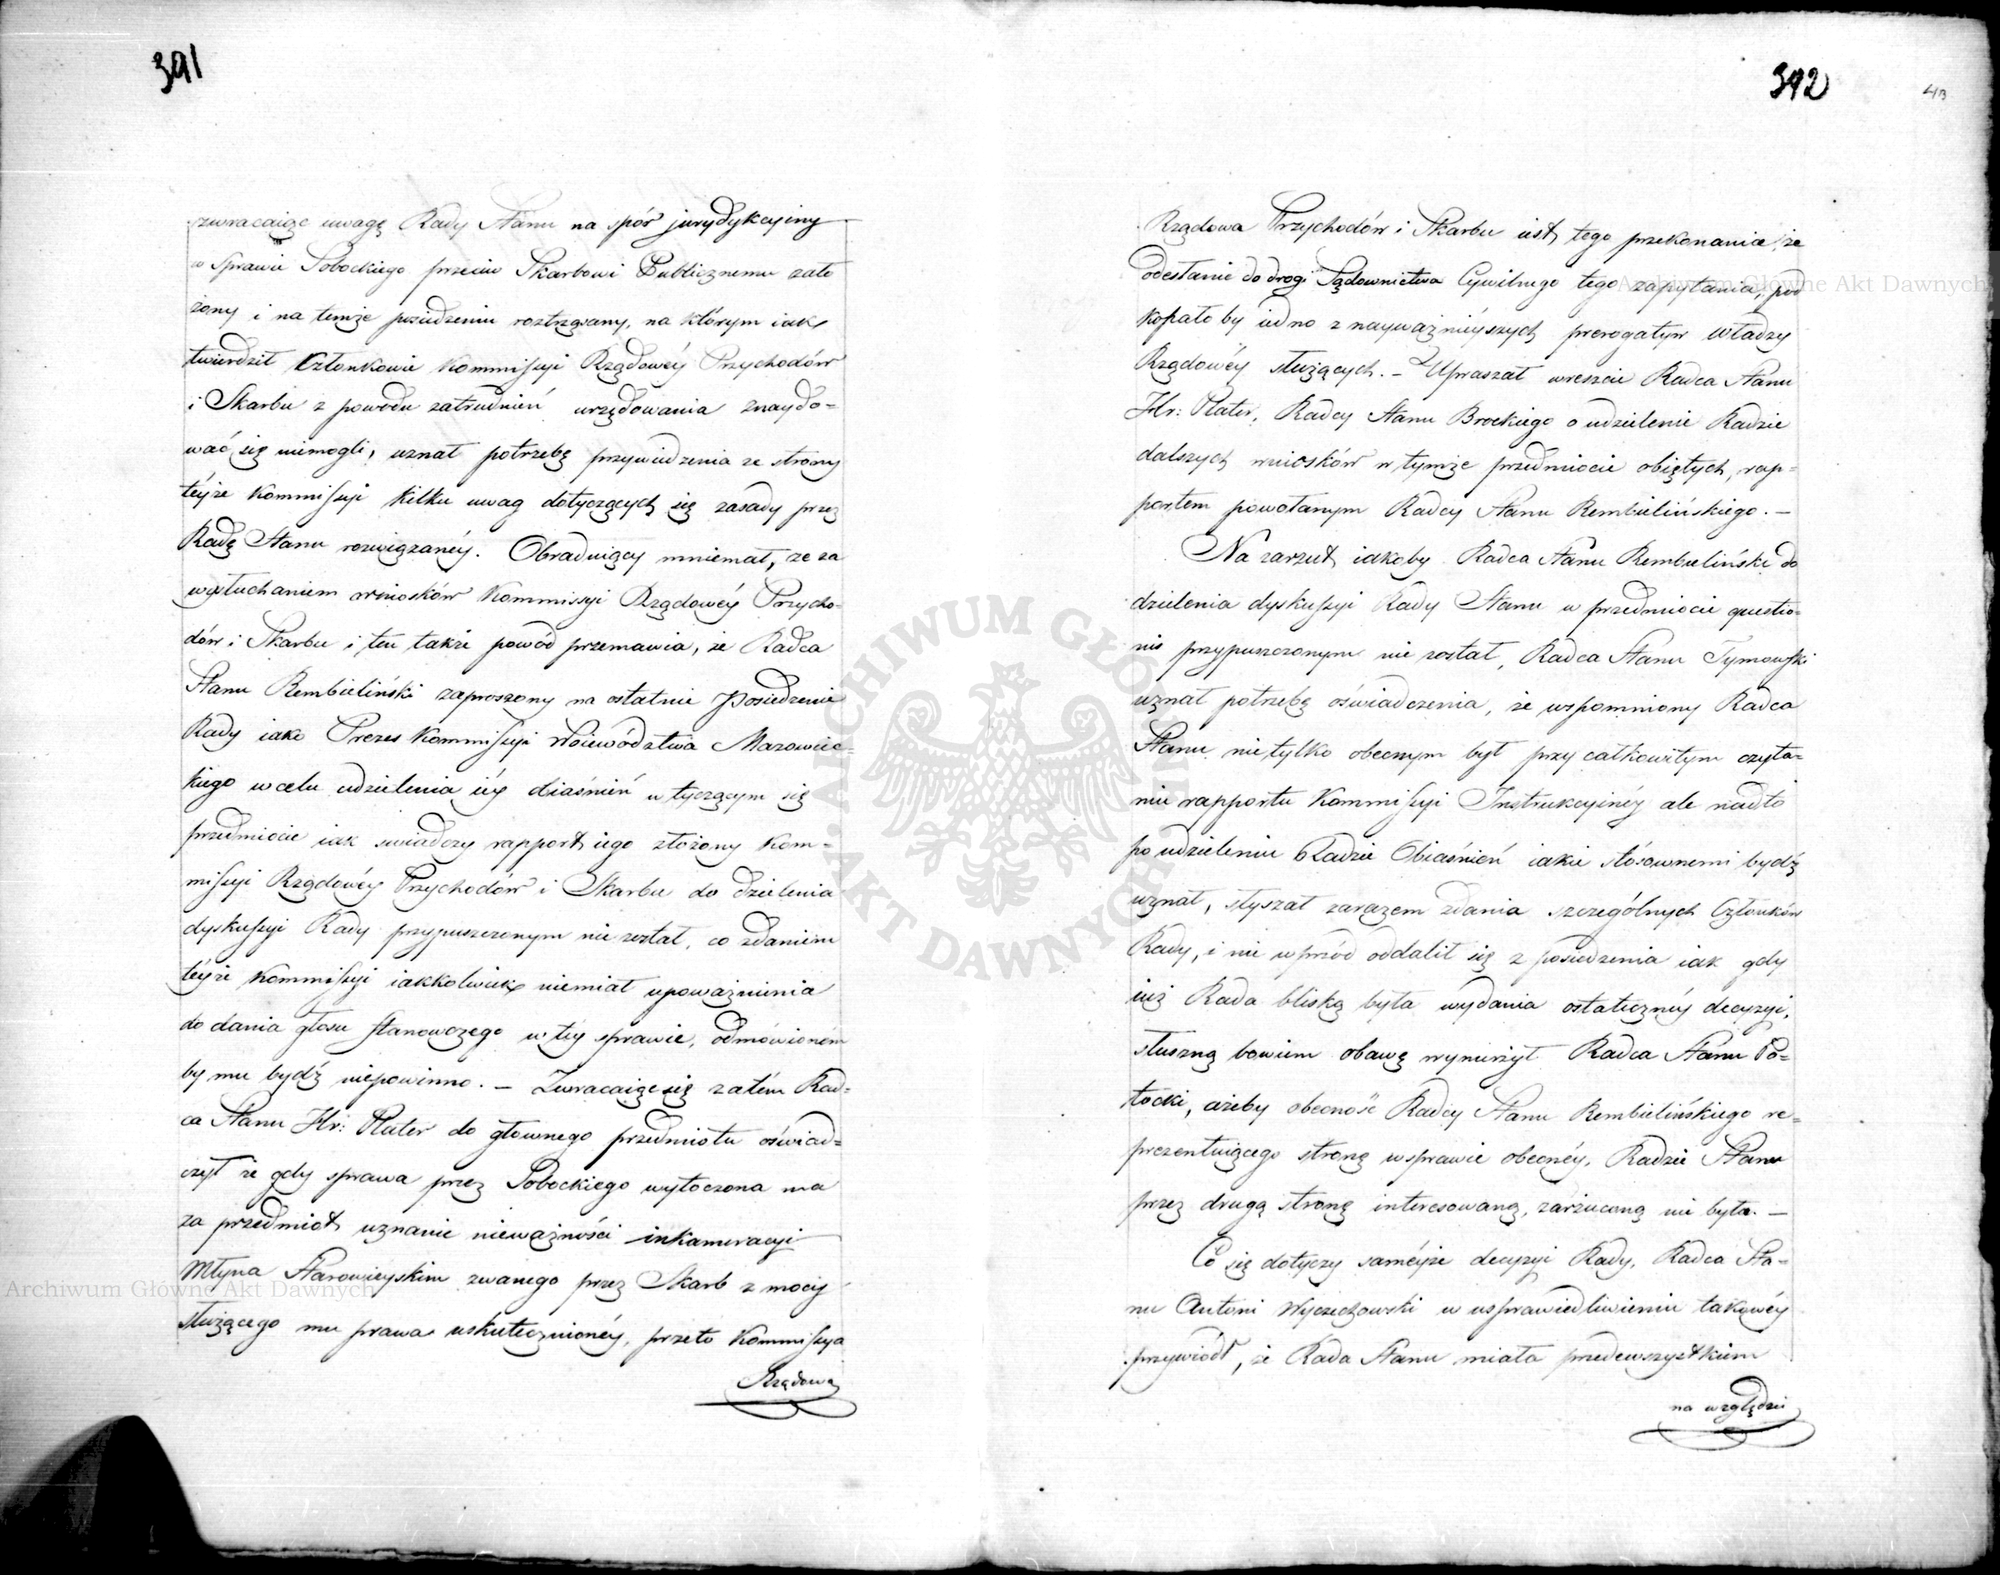 391
zwracaiąc uwagę Rady Stanu na spór jurydykcyiny
w Sprawie Sobockiego przeciw Skarbowi Publicznemu zało
żony i na temże posiedzeniu roztrząsany, na którym iak
twierdził Członkowie Kommissyi Rządowéy Przychodów
i Skarbu z powodu zatrudnień urzędowania znaydo=
wać się niemogli, uznał potrzebę przywiedzenia ze strony
téyże Kommissyi kilku uwag dotyczących się zasady przez
Radę Stanu rozwiązanéy. Obraduiący mniemał, że za
wysłuchaniem wniosków Kommissyi Rządowéy Przycho=
dów i Skarbu i ten także powód przemawia, że Radca
Stanu Rembieliński zaproszony na ostatnie Posiedzenie
Rady iako Prezes Kommissyi Woiewództwa Mazowiec=
kiego w celu udzielenia iéy obiaśnień w tyczącym się
przedmiocie iak swiadczy rapport iego złożony Kom=
missyi Rządowéy Przychodów i Skarbu do dzielenia
dyskussyi Rady przypuszczonym nie został, co zdaniem
téyże Kommissyi iakkolwiek niemiał upoważnienia
do dania głosu stanowczego w téy sprawie, odmówionem
by mu bydź niepowinno. — Zwracaiąc się zatém Rad=
ca Stanu Hr: Plater do głownego przedmiotu oświad=
czył że gdy sprawa przez Sobockiego wytoczona ma
za przedmiot uznanie nieważności inkameracyi
Młyna Starowieyskim zwanego przez Skarb z mocy
służącego mu prawa uskutecznionéy, przeto Kommissya
Rządowa
392
Rządowa Przychodów i Skarbu iest tego przekonania, że
odesłanie do drogi Sądownictwa Cywilnego tego zapytania, pod
kopało by iedno z nayważnieyszych prerogatyw Władzy
Rządowéy służących. — Upraszał wreszcie Radca Stanu
Hr: Plater, Radcy Stanu Brockiego o udzielenie Radzie
dalszych wniosków w tymże przedmiocie obiętych, rap=
portem powołanym Radcy Stanu Rembielińskiego. —
Na zarzut iakoby Radca Stanu Rembieliński do
dzielenia dyskussyi Rady Stanu w przedmiocie questio=
nis przypuszczonym nie został, Radca Stanu Tymowski
uznał potrzebę oświadczenia, że wspomniony Radca
Stanu nietylko obecnym był przy całkowitym czyta=
niu rapportu Kommissyi Instrukcyinéy ale nadto
po udzieleniu Radzie Obiaśnień iakie stósownemi bydź
uznał, słyszał zarazem zdania szczególnych Członków
Rady, i nie wprzód oddalił się z posiedzenia iak gdy
iuż Rada bliską była wydania ostatecznéy decyzyi,
słuszną bowiem obawę wynurzył Radca Stanu Po=
tocki, ażeby obecność Radcy Stanu Rembielińskiego re=
prezentuiącego stronę w sprawie obecnéy, Radzie Stanu
przez drugą stronę interesowaną, zarzuconą nie była. —
Co się dotyczy saméyże decyzyi Rady, Radca Sta=
nu Antoni Wyczechowski w usprawiedliwieniu takowéy
przywiódł, że Rada Stanu miała przedewszystkiem
na względzie